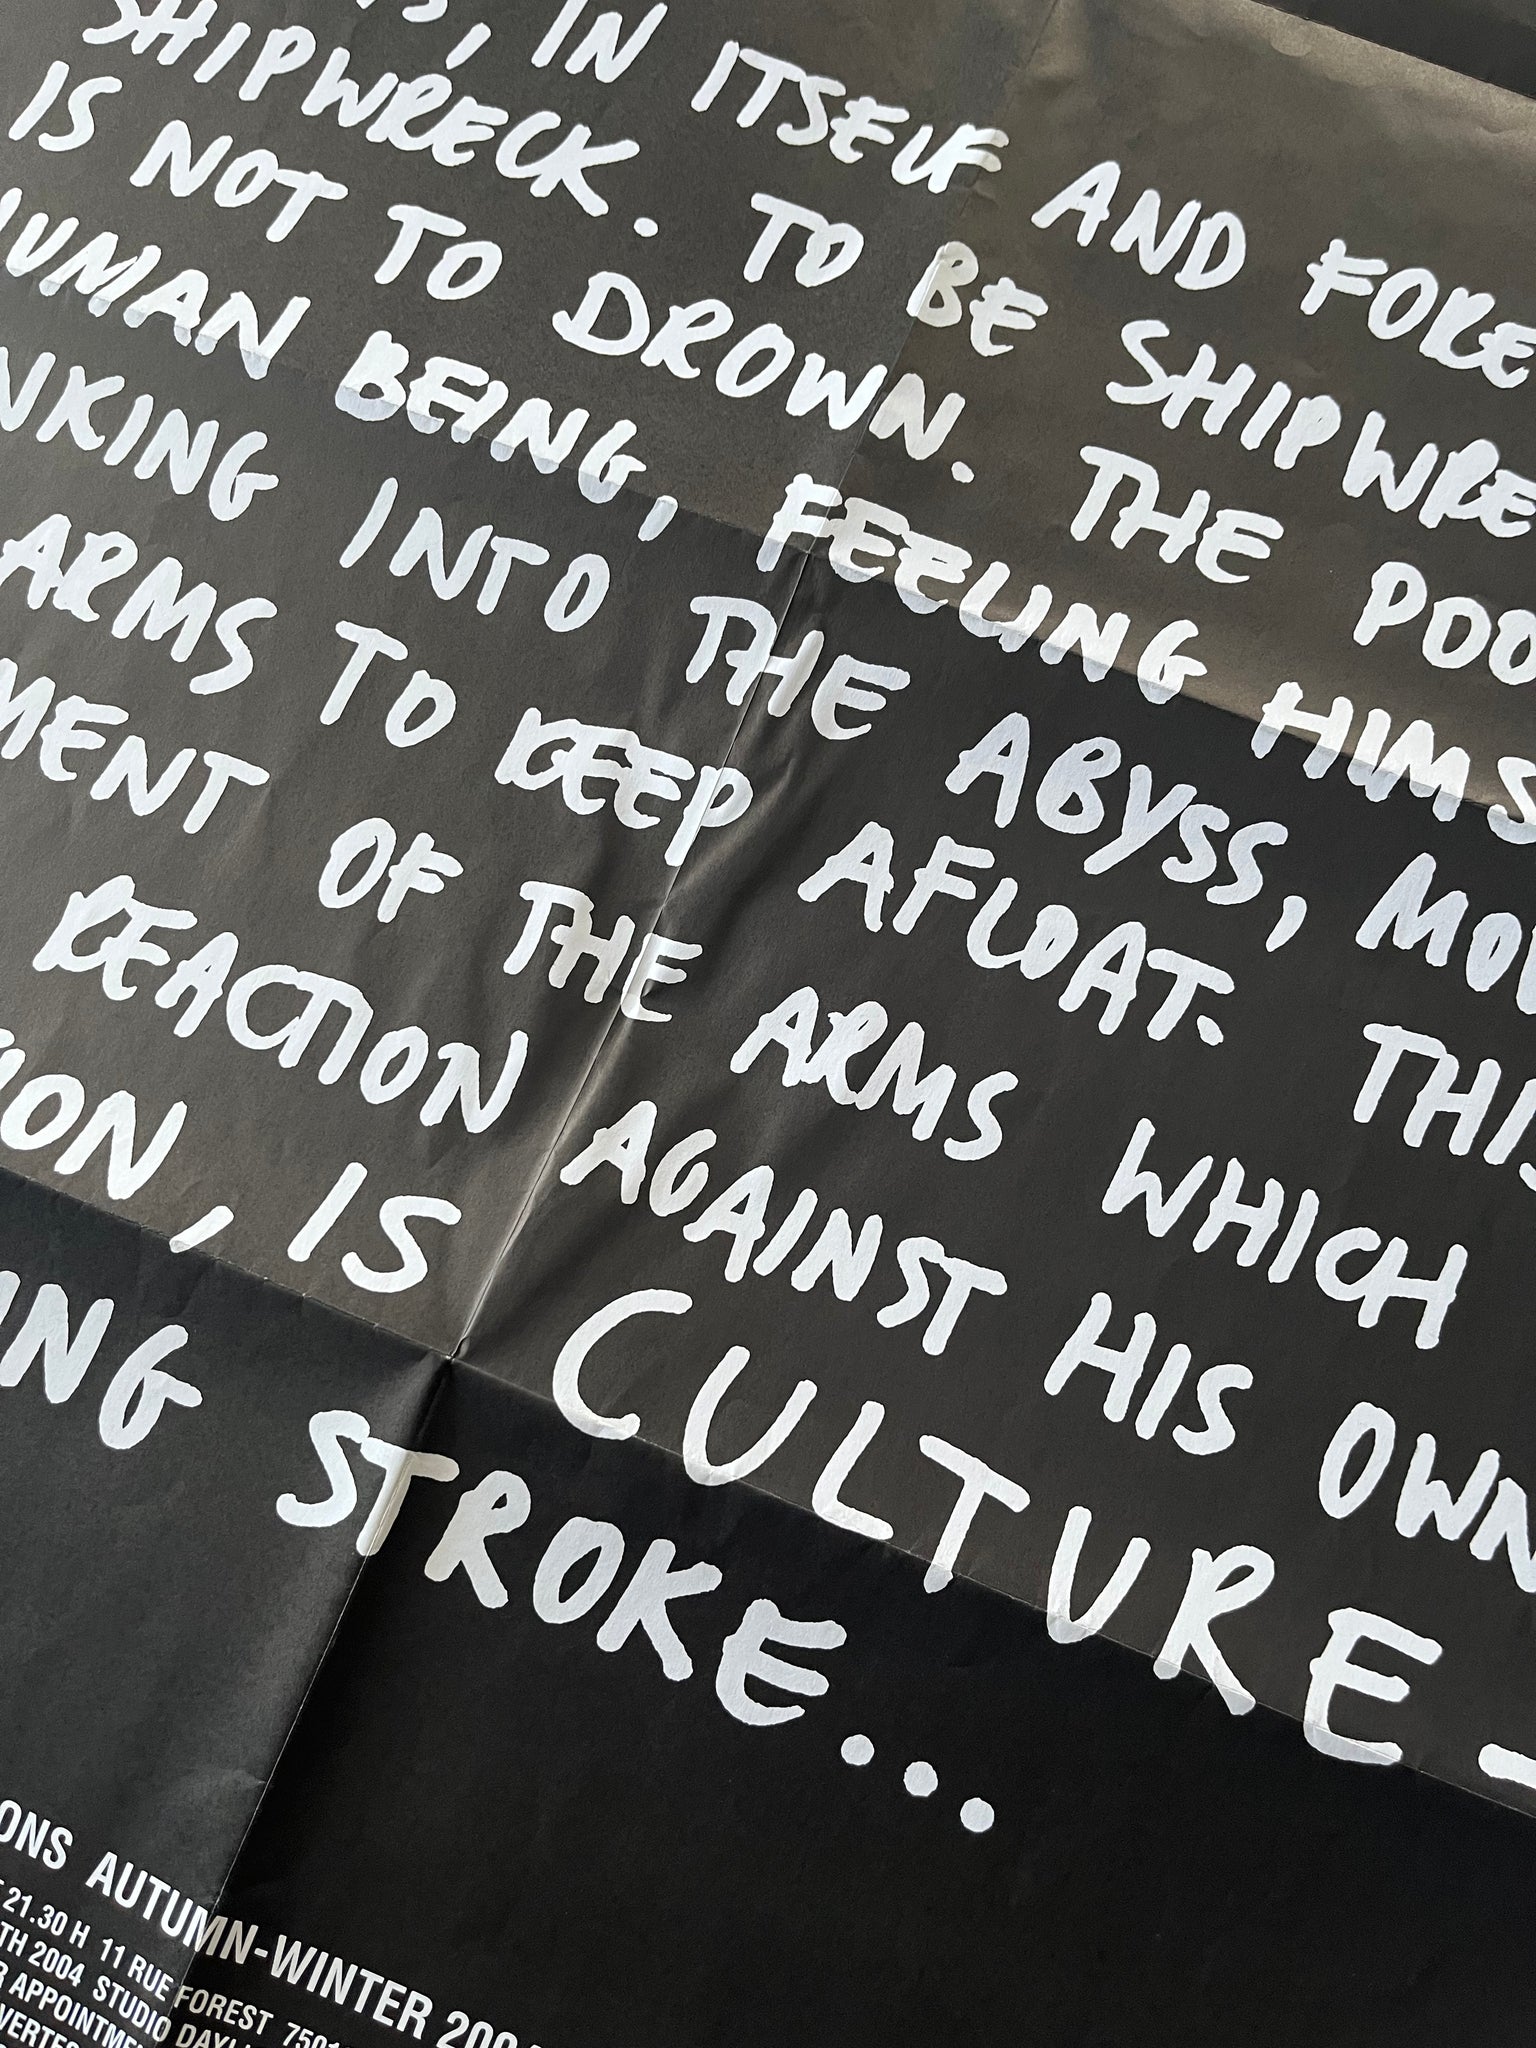 S, IN ITSELF AND FORE
SHIPWRECK. TO BE SHIPWRE
IS NOT TO DROWN. THE POO
HUMAN BEING, FEELING HIMS
NKING INTO THE ABYSS, MOV
ARMS TO KEEP AFLOAT. THIS
MENT OF THE ARMS WHICH
REACTION AGAINST HIS OWN
TION, IS CULTURE_
ING STROKE...
ONS AUTUMN-WINTER 200
21.30 H 11 RUE FOREST 750
TH 2004 STUDIO DAYLI
R APPOINTMEN
VERTES